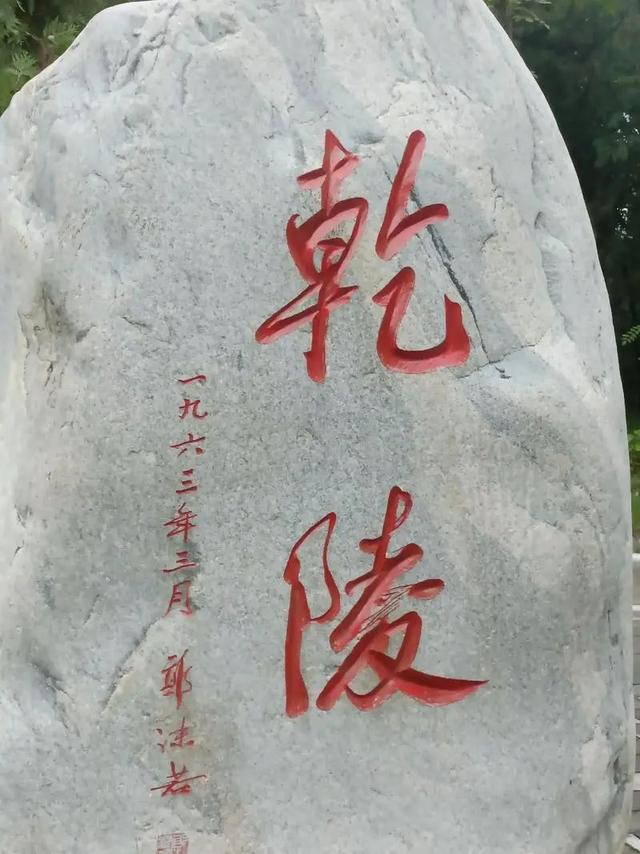 乾陵
一九六三年三月 郭沫若